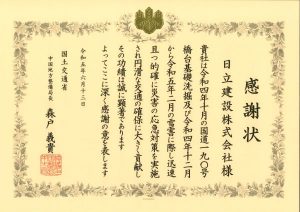 感謝状
日立建設株式会社様
貴社は令和四年十月の国道一九〇号
橋台基礎洗掘及び令和四年十二月
から令和五年二月の雪害に際し迅速
且つ的確に災害の応急対策を実施
され円滑な交通の確保に大きく貢献し
その功績は誠に顕著であります
よってここに深く感謝の意を表します
令和五年六月十二日
国土交通省
中国地方整備局長
森戸義貴